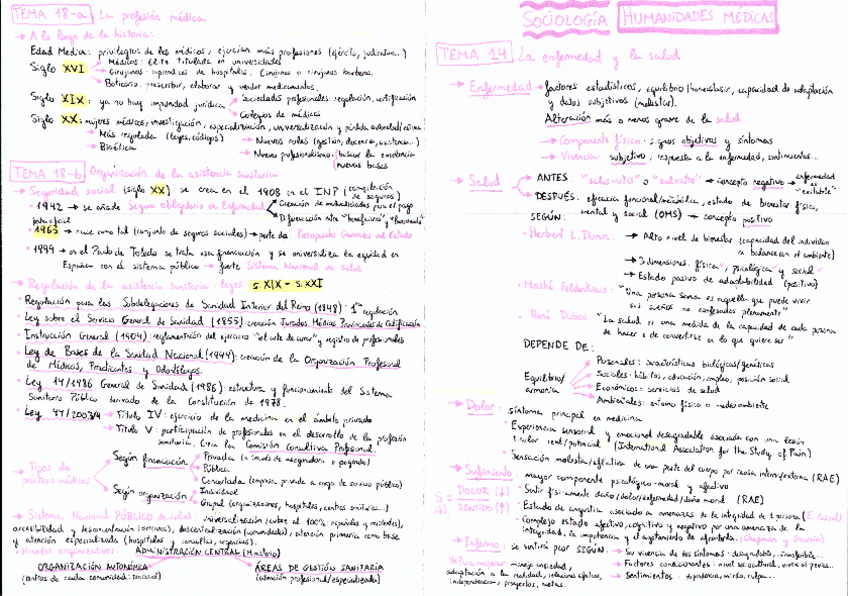 TEMA 18-a La profesión médica
→ A lo largo de la historia:
Edad Media: privilegios de los médicos, ejercían más profesiones (ejército, judicatura...)
Siglo XVI → Médicos: élite titulada en universidades
→ Cirujanos: aprendices de hospitales. Cirujanos o cirujanos barberos.
→ Boticario: prescribir, elaborar y vender medicamentos.
Siglo XIX: ya no hay impunidad jurídica → Sociedades profesionales: regulación, certificación
→ Colegios de médicos
Siglo XX: mujeres médicos, investigación, especialización, universalización y pérdida autoridad/estima
→ Más regulada (leyes, códigos)
→ Bioética
→ Nuevos roles (gestión, docencia, asistencia...)
→ Nuevo profesionalismo: buscar la excelencia
nuevas bases
TEMA 18-b Organización de la asistencia sanitaria
→ Seguridad social (siglo XX): se crea en el 1908 en el INP (
de seguros)
• 1942 → se añade Seguro obligatorio de Enfermedad → Creación de mutualidades para el pago
→ Diferenciación entre "beneficencia" y
• 1963 → nace como tal (conjunto de seguros sociales) → parte de: Presupuestos Generales del Estado
→ en el Pacto de Toledo se trata esa financiación y se universaliza la equidad en
España con el sistema público → forte Sistema Nacional de Salud
→ Regulación de la asistencia sanitaria: leyes s. XIX - s. XXI
• Regulación para las Subdelegaciones de Sanidad Interior del Reino (1848): 1ª regulación
• Ley sobre el Servicio General de Sanidad (1855): creación Jurados Médicos Provinciales de Calificación
• Instrucción General (1904): reglamentación del ejercicio "el arte de curar" y registro de profesionales
• Ley de Bases de la Sanidad Nacional (1944): creación de la Organización Profesional
de Médicos, Practicantes y Odontólogos.
• Ley 14/1986 General de Sanidad (1986): estructura y funcionamiento del Sistema
Sanitario Público derivado de la Constitución de 1978.
• Ley 44/2003 → Título IV: ejercicio de la medicina en el ámbito privado
→ Título V: participación de profesionales en el desarrollo de la profesión
sanitaria. Crea la Comisión Consultiva Profesional.
→ Tipos de prácticas médicas
Según financiación → Privada (a través de aseguradora o pagando)
→ Pública
→ Concertada (empresa privada a cargo de servicio público)
Según organización → Individual
→ Grupal (organizaciones, hospitales, centros sanitarios...)
→ Sistema Nacional PÚBLICO de salud: universalización (cubre al 100%: españoles y
accesibilidad y desconcentración descentralización (comunidades), atención primaria como base
y atención especializada (hospitales y consultas, urgencias).
• Niveles organizativos: ADMINISTRACIÓN CENTRAL (Ministerio)
ORGANIZACIÓN AUTONÓMICA
ÁREAS DE GESTIÓN SANITARIA
(centros de cada comunidad:
(atención profesional/especializada)
SOCIOLOGÍA HUMANIDADES MÉDICAS
TEMA 14 La enfermedad y la salud
→ Enfermedad → factores estadísticos, equilibrio/homeostasis, capacidad de adaptación
y datos subjetivos (malestar).
Alteración más o menos grave de la salud
→ Componente físico: signos objetivos y síntomas
→ Vivencia: subjetivo, respuesta a la enfermedad, sentimientos...
→ Salud → ANTES "salus-utis" o "salvatio" → concepto negativo → enfermedad
es "evitable"
→ DESPUÉS: eficacia funcional/metabólica, estado de bienestar físico,
mental y social (OMS) → concepto positivo
SEGÚN:
• Herbert L. Dunn: → Alto nivel de bienestar (capacidad del individuo
en balancear el ambiente)
→ 3 dimensiones: física, psicológica y social
→ Estado pasivo de adaptabilidad (positivo)
• Moshé Feldenkrais: "Una persona sana es aquella que puede vivir
sus sueños no confesados plenamente"
• René Dubos: "La salud es una medida de la capacidad de cada persona
de hacer o de convertirse en lo que quiere ser"
DEPENDE DE:
Equilibrio/armonía
Personales: características biológicas/genéticas
Sociales: hábitos, educación, empleo, posición social
Económicos: servicios de salud
Ambientales: entorno físico o medio ambiente
→ Dolor: síntoma principal en medicina
• Experiencia sensorial y emocional desagradable asociada con una lesión
tisular real/potencial (International Association for the Study of Pain)
• Sensación molesta/aflictiva de una parte del cuerpo por causa interna/externa (RAE)
→ Sufrimiento: mayor componente psicológico-moral y afectivo
S = DOLOR (↑)
SENTIDO (↓)
• Sentir físicamente daño/dolor/enfermedad/daño moral (RAE)
• Estado de angustia asociado a amenazas de la integridad de 1 persona (E. Cassel)
• Complejo estado afectivo, cognitivo y negativo por una amenaza de la
integridad, la impotencia y el agotamiento de afrontarla. (Chapman y Gavrin)
→ Enfermo: se sentirá peor SEGÚN → Su vivencia de los síntomas: desagradable,
→ Factores condicionantes: nivel sociocultural, vivencias previas...
→ Sentimientos: dependencia, miedo, culpa...
Para mejorar: manejo ansiedad,
adaptación a la realidad, relaciones afectivas,
independencia, proyectos, metas...